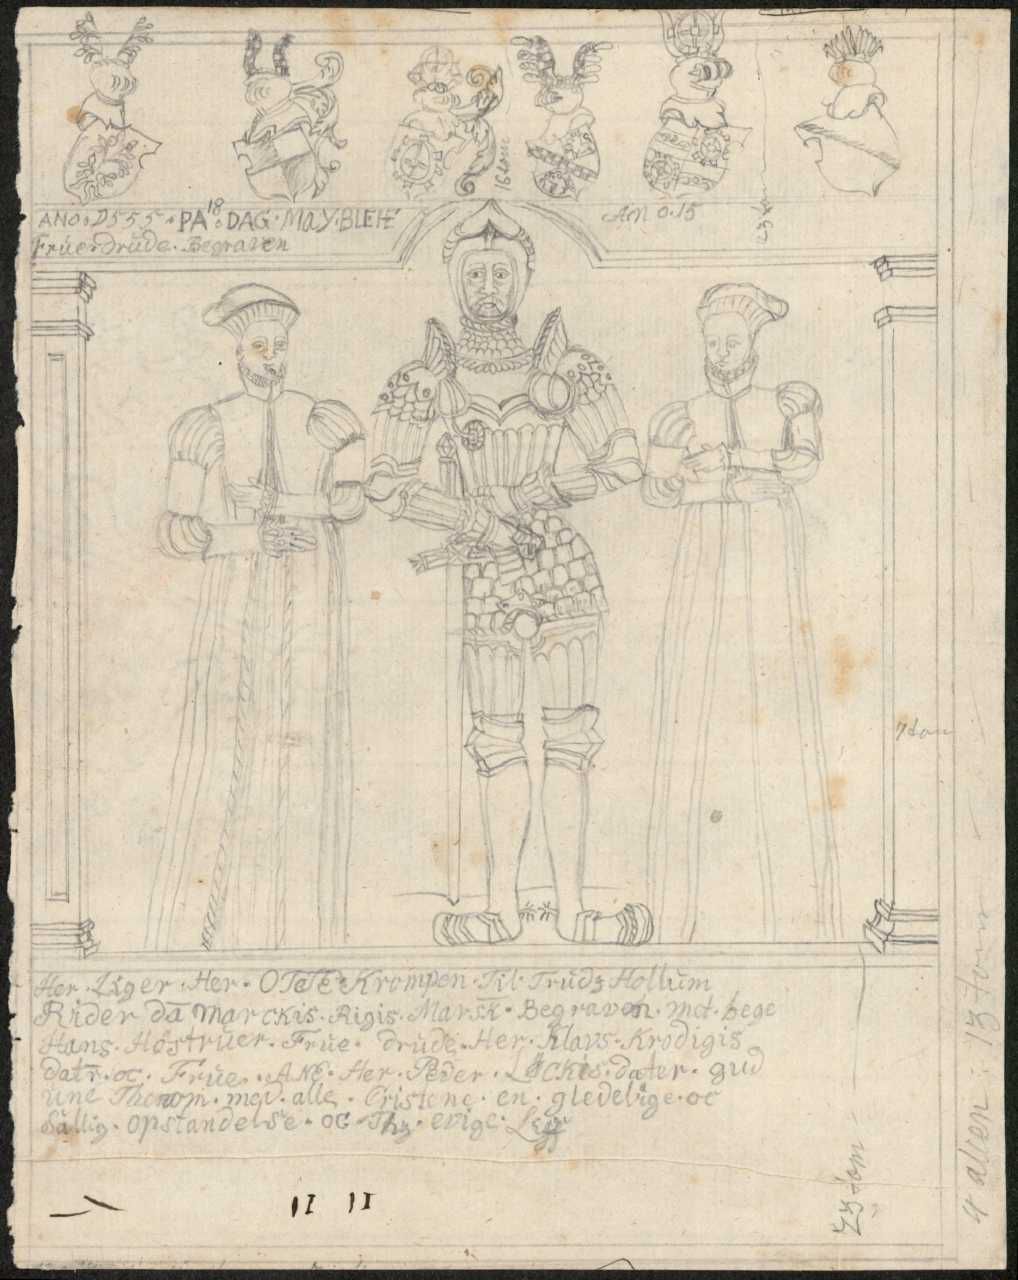 ANO.D555.PA 18 DAG.MaY.BLEE
Frúer drúde. Begraven
AnO.15
16 tom
7 tom
Her. Liger. Her. OTeTE Krompen. Til. Trúdz Hollum
Rider da Marckis. Rigis. Marsk. Begraven. met. bege
Hans. Höstrúer. Frúe. drúde. Her. Klavs. Krodigis
datr. oc. Frúe. ANe. Her. Peder. Lÿckis. dater. gud
une Thenom. mev. alle. Cristene. en. gledelige. oc
Sållig. opstandelse. OC Thz. evige. Leff
4 alien: 13 tom